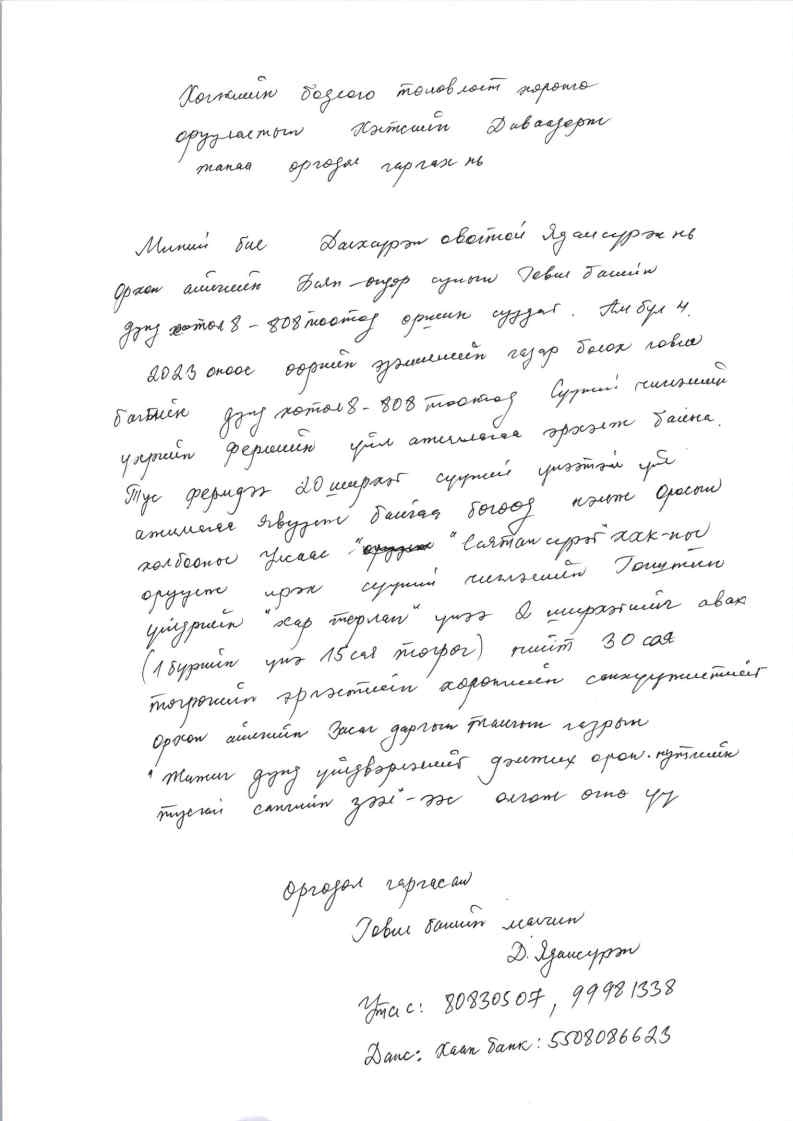 Хөгжлийн бодлого төлөвлөлт хөрөнгө
оруулалтын хэлтсийн Даваадорж
танаа өргөдөл гаргах нь
Миний бие Дагхсүрэн овогтой Ядамсүрэн нь
Орхон аймгийн Баян-өндөр сумын Говил багийн
дунд хотол 8-808 тоотод оршин суудаг. Ам бүл 4.
2023 оноос өөрийн эзэмшлийн газар болох говил
багийн дунд хотол 8-808 тоотод Сүүний чиглэлийн
үхрийн фермийн үйл ажиллагаа эрхэлж байна.
Тус фермдээ 20 ширхэг сүүний үнээтэй үйл
ажиллагаа явуулж байгаа бөгөөд нэмж Оросын
холбооны Улсаас " "Саятан сүрэг" ХХК-иос
оруулж ирэх сүүний чиглэлийн Голштин
үүлдрийн "хар тарлан" үнээ 2 ширхэгийг авах
(1 бүрийн үнэ 15 сая төгрөг) нийт 30 сая
төгрөгийн эргэлтийн хөрөнгийн санхүүжилтийг
Орхон аймгийн Засаг даргын тамгын газрын
"Жижиг дунд үйлдвэрлэлийг дэмжих орон-нутгийн
тусгай сангийн зээл"-ээс олгож өгнө үү
Өргөдөл гаргасан
Говил багийн малчин
Д. Ядамсүрэн
Утас: 80830507, 99981338
Данс: Хаан банк: 5508086623